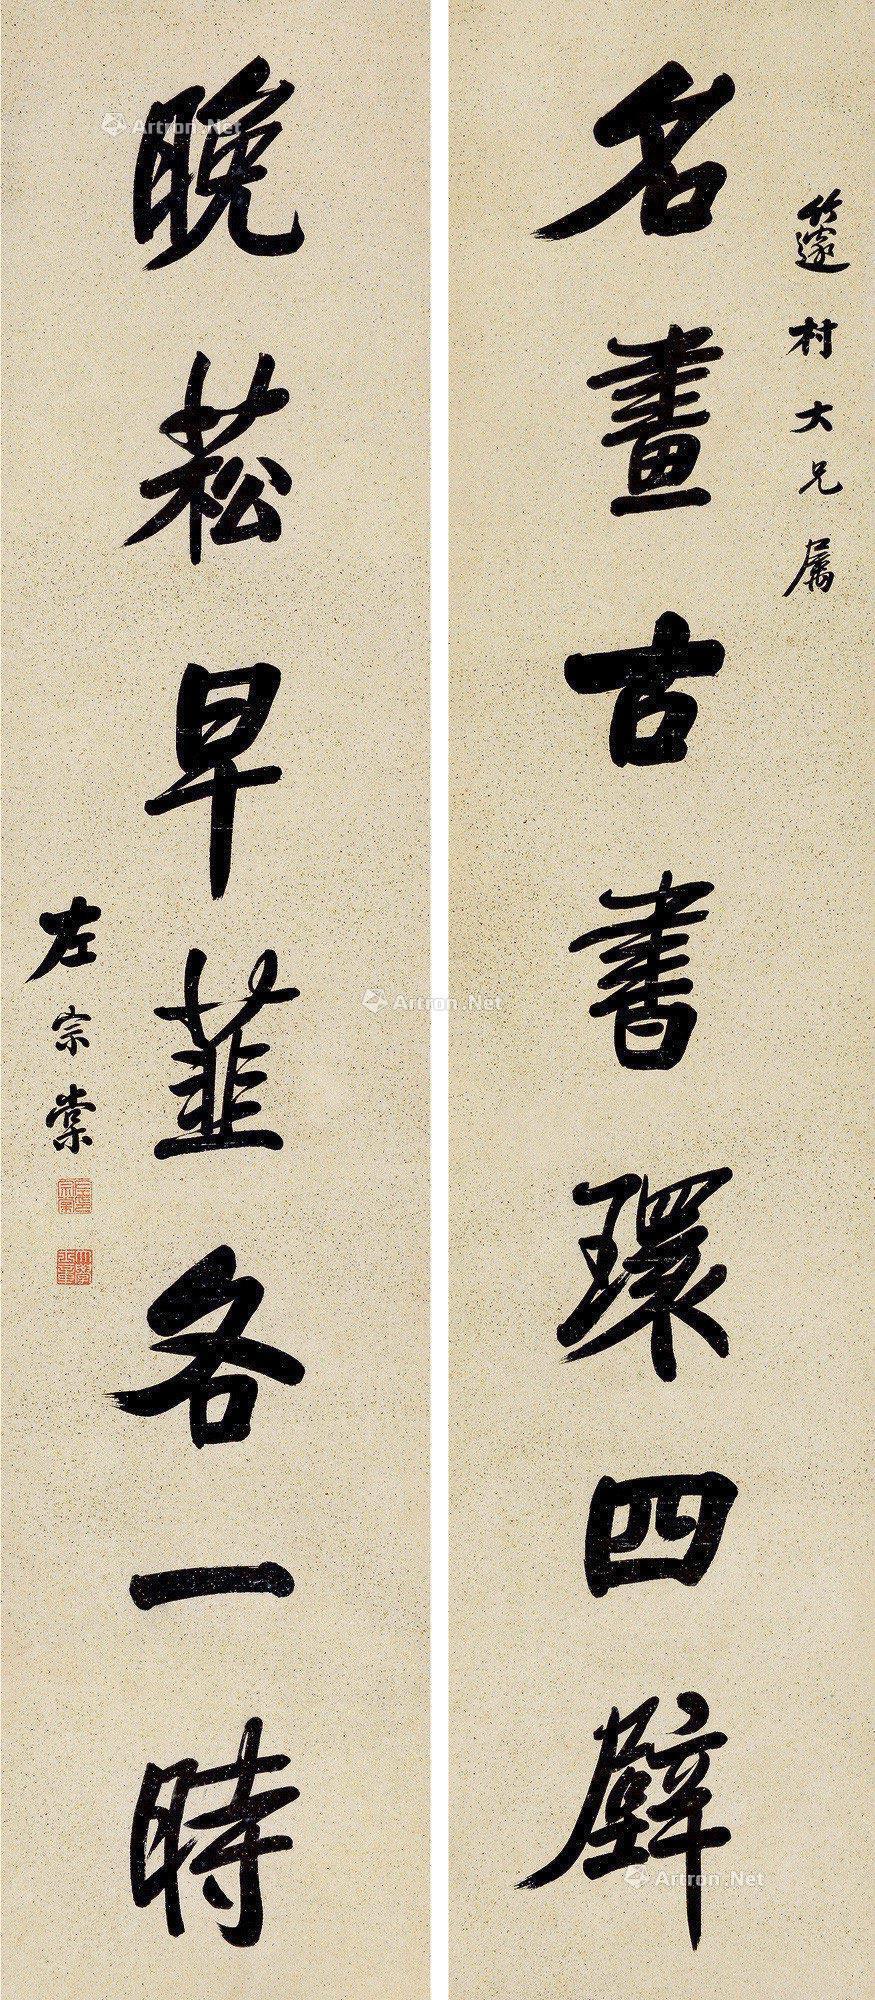 邃村大兄屬
名畫古書環四壁
晚菘早韮各一時
左宗棠
Artron.Net
Artron.Net
Artron.Net